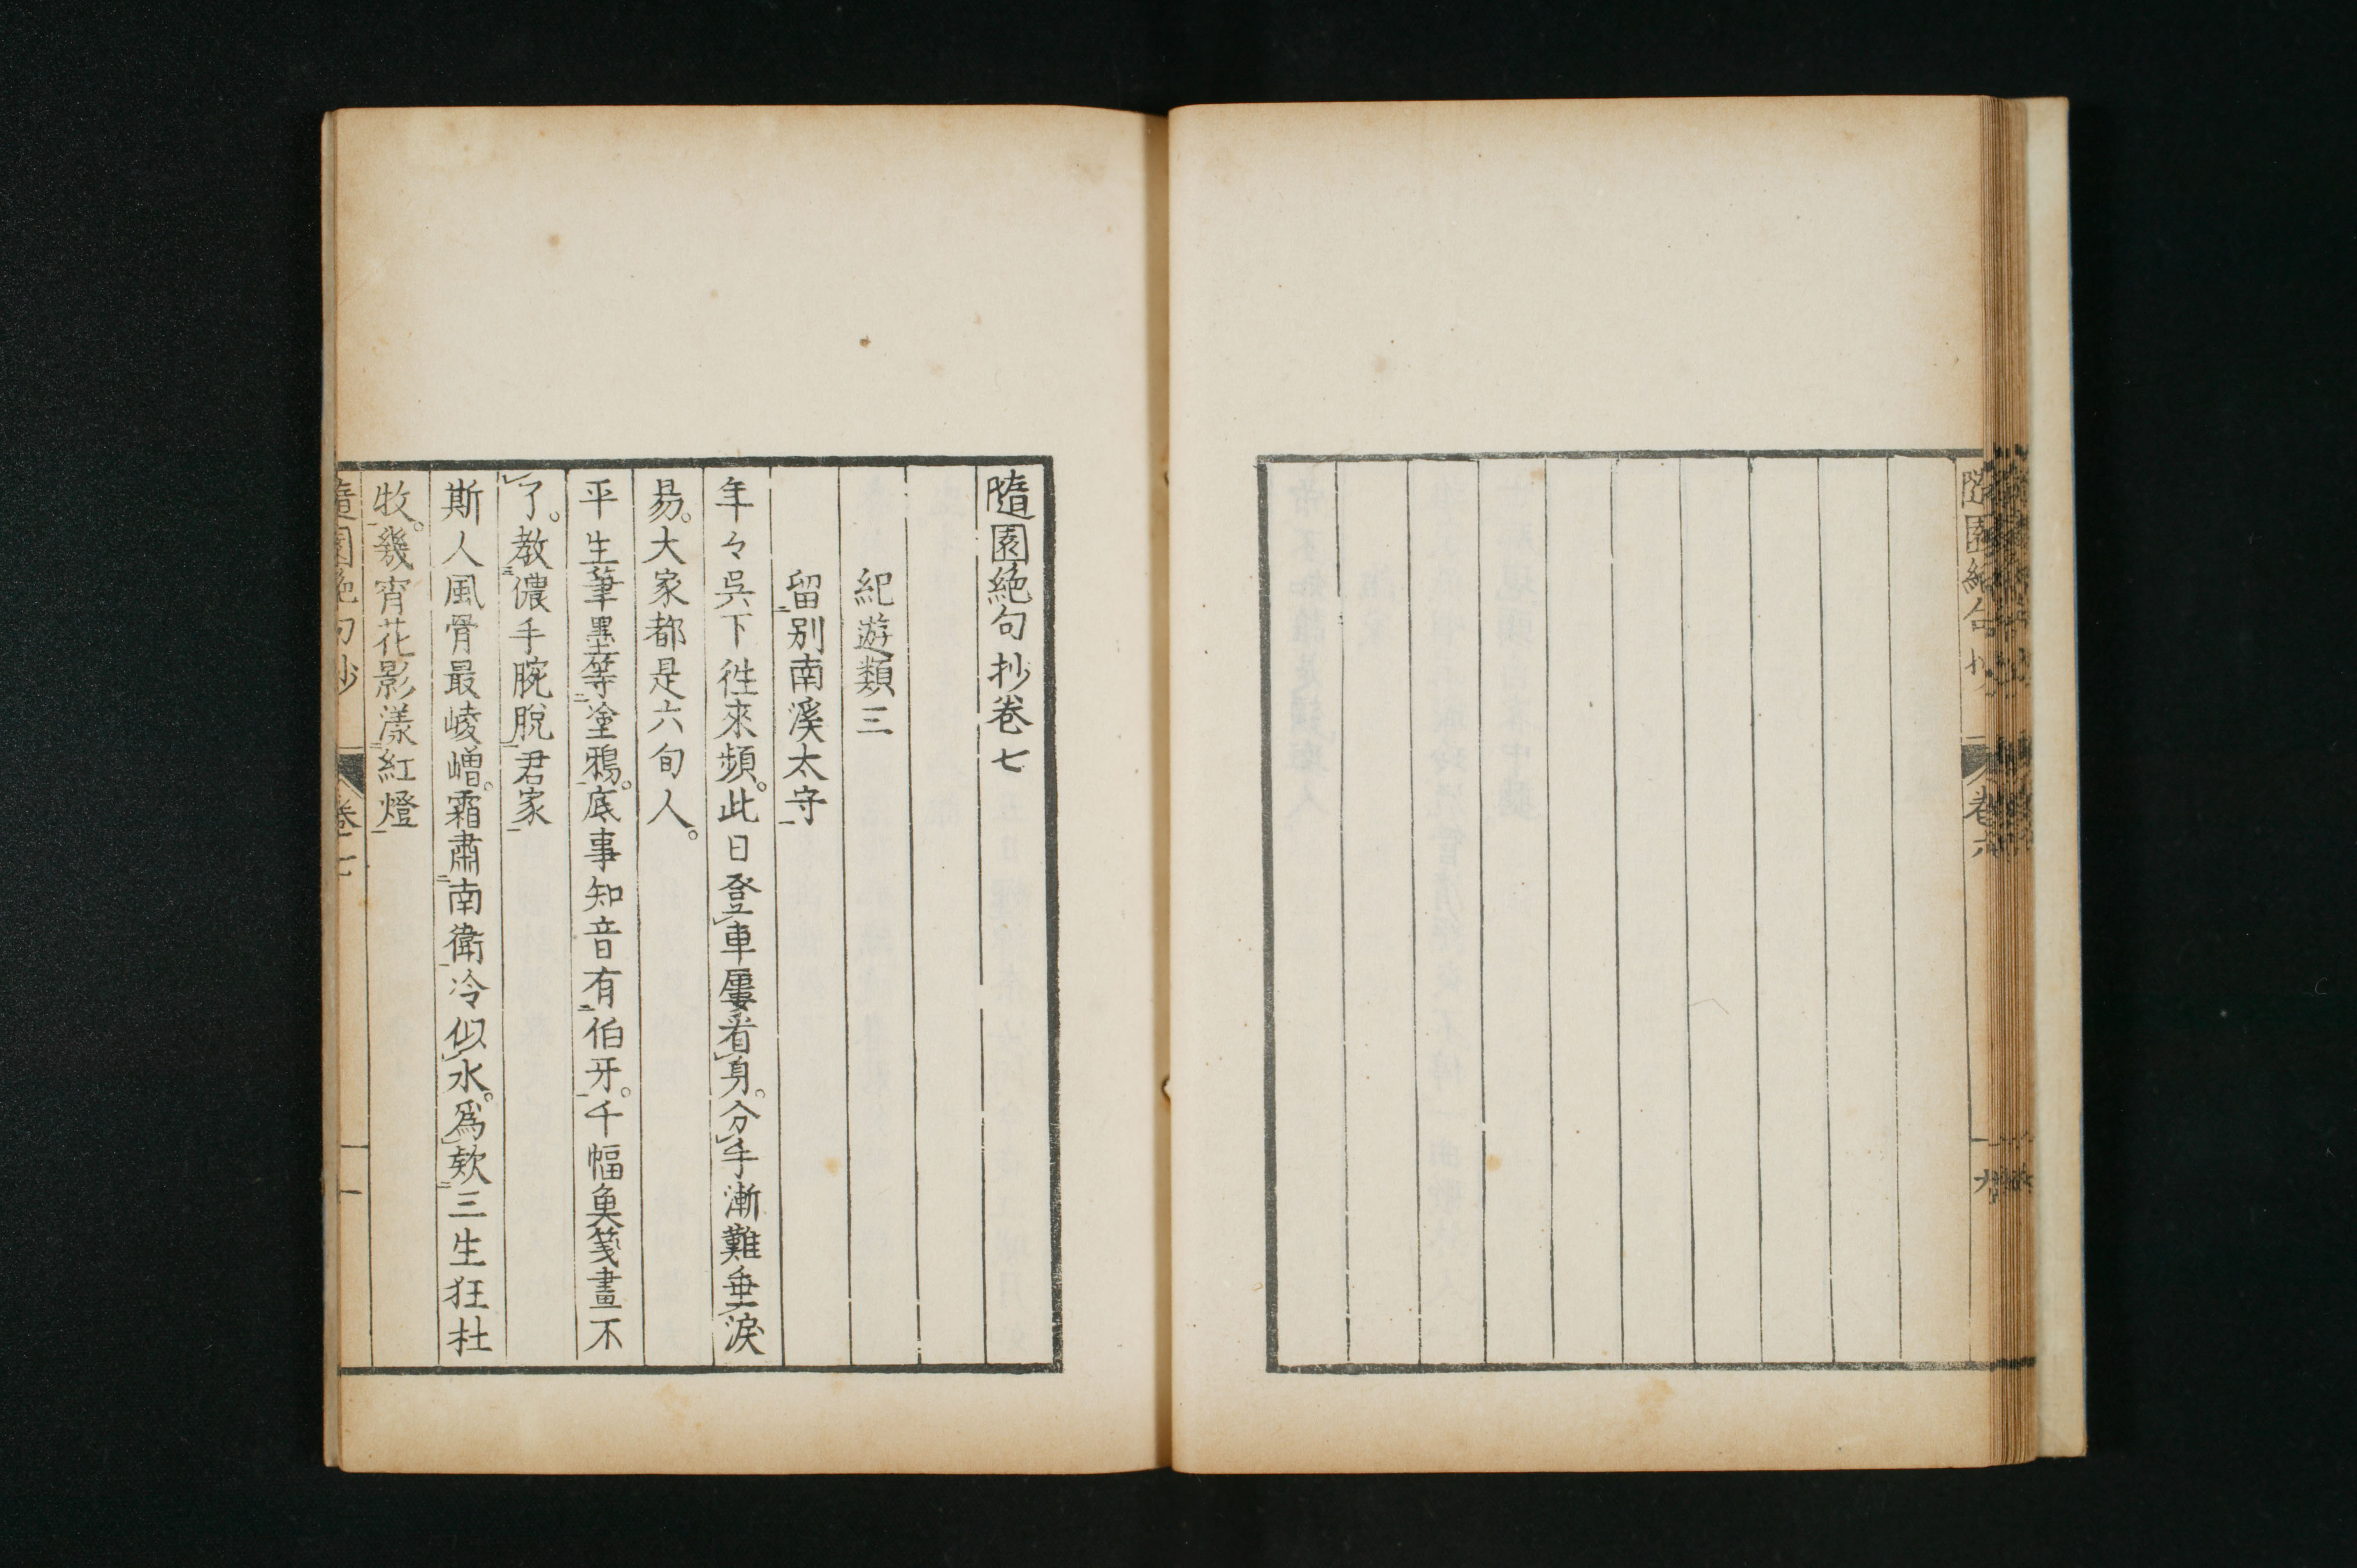 隨園絕句抄
卷六
九
隨園絶句抄卷七
紀遊類三
留別南溪太守
年々吳下徃來頻。此日登車屢看身。分手漸難垂淚
易。大家都是六旬人。
平生筆墨等塗鴉。底事知音有伯牙。千幅魚箋畫不
了。教儂手腕脫君家
斯人風骨最崚嶒。霜肅南衛冷似水。爲欸三生狂杜
牧。幾宵花影漾紅燈
隨園絶句抄
卷七
一